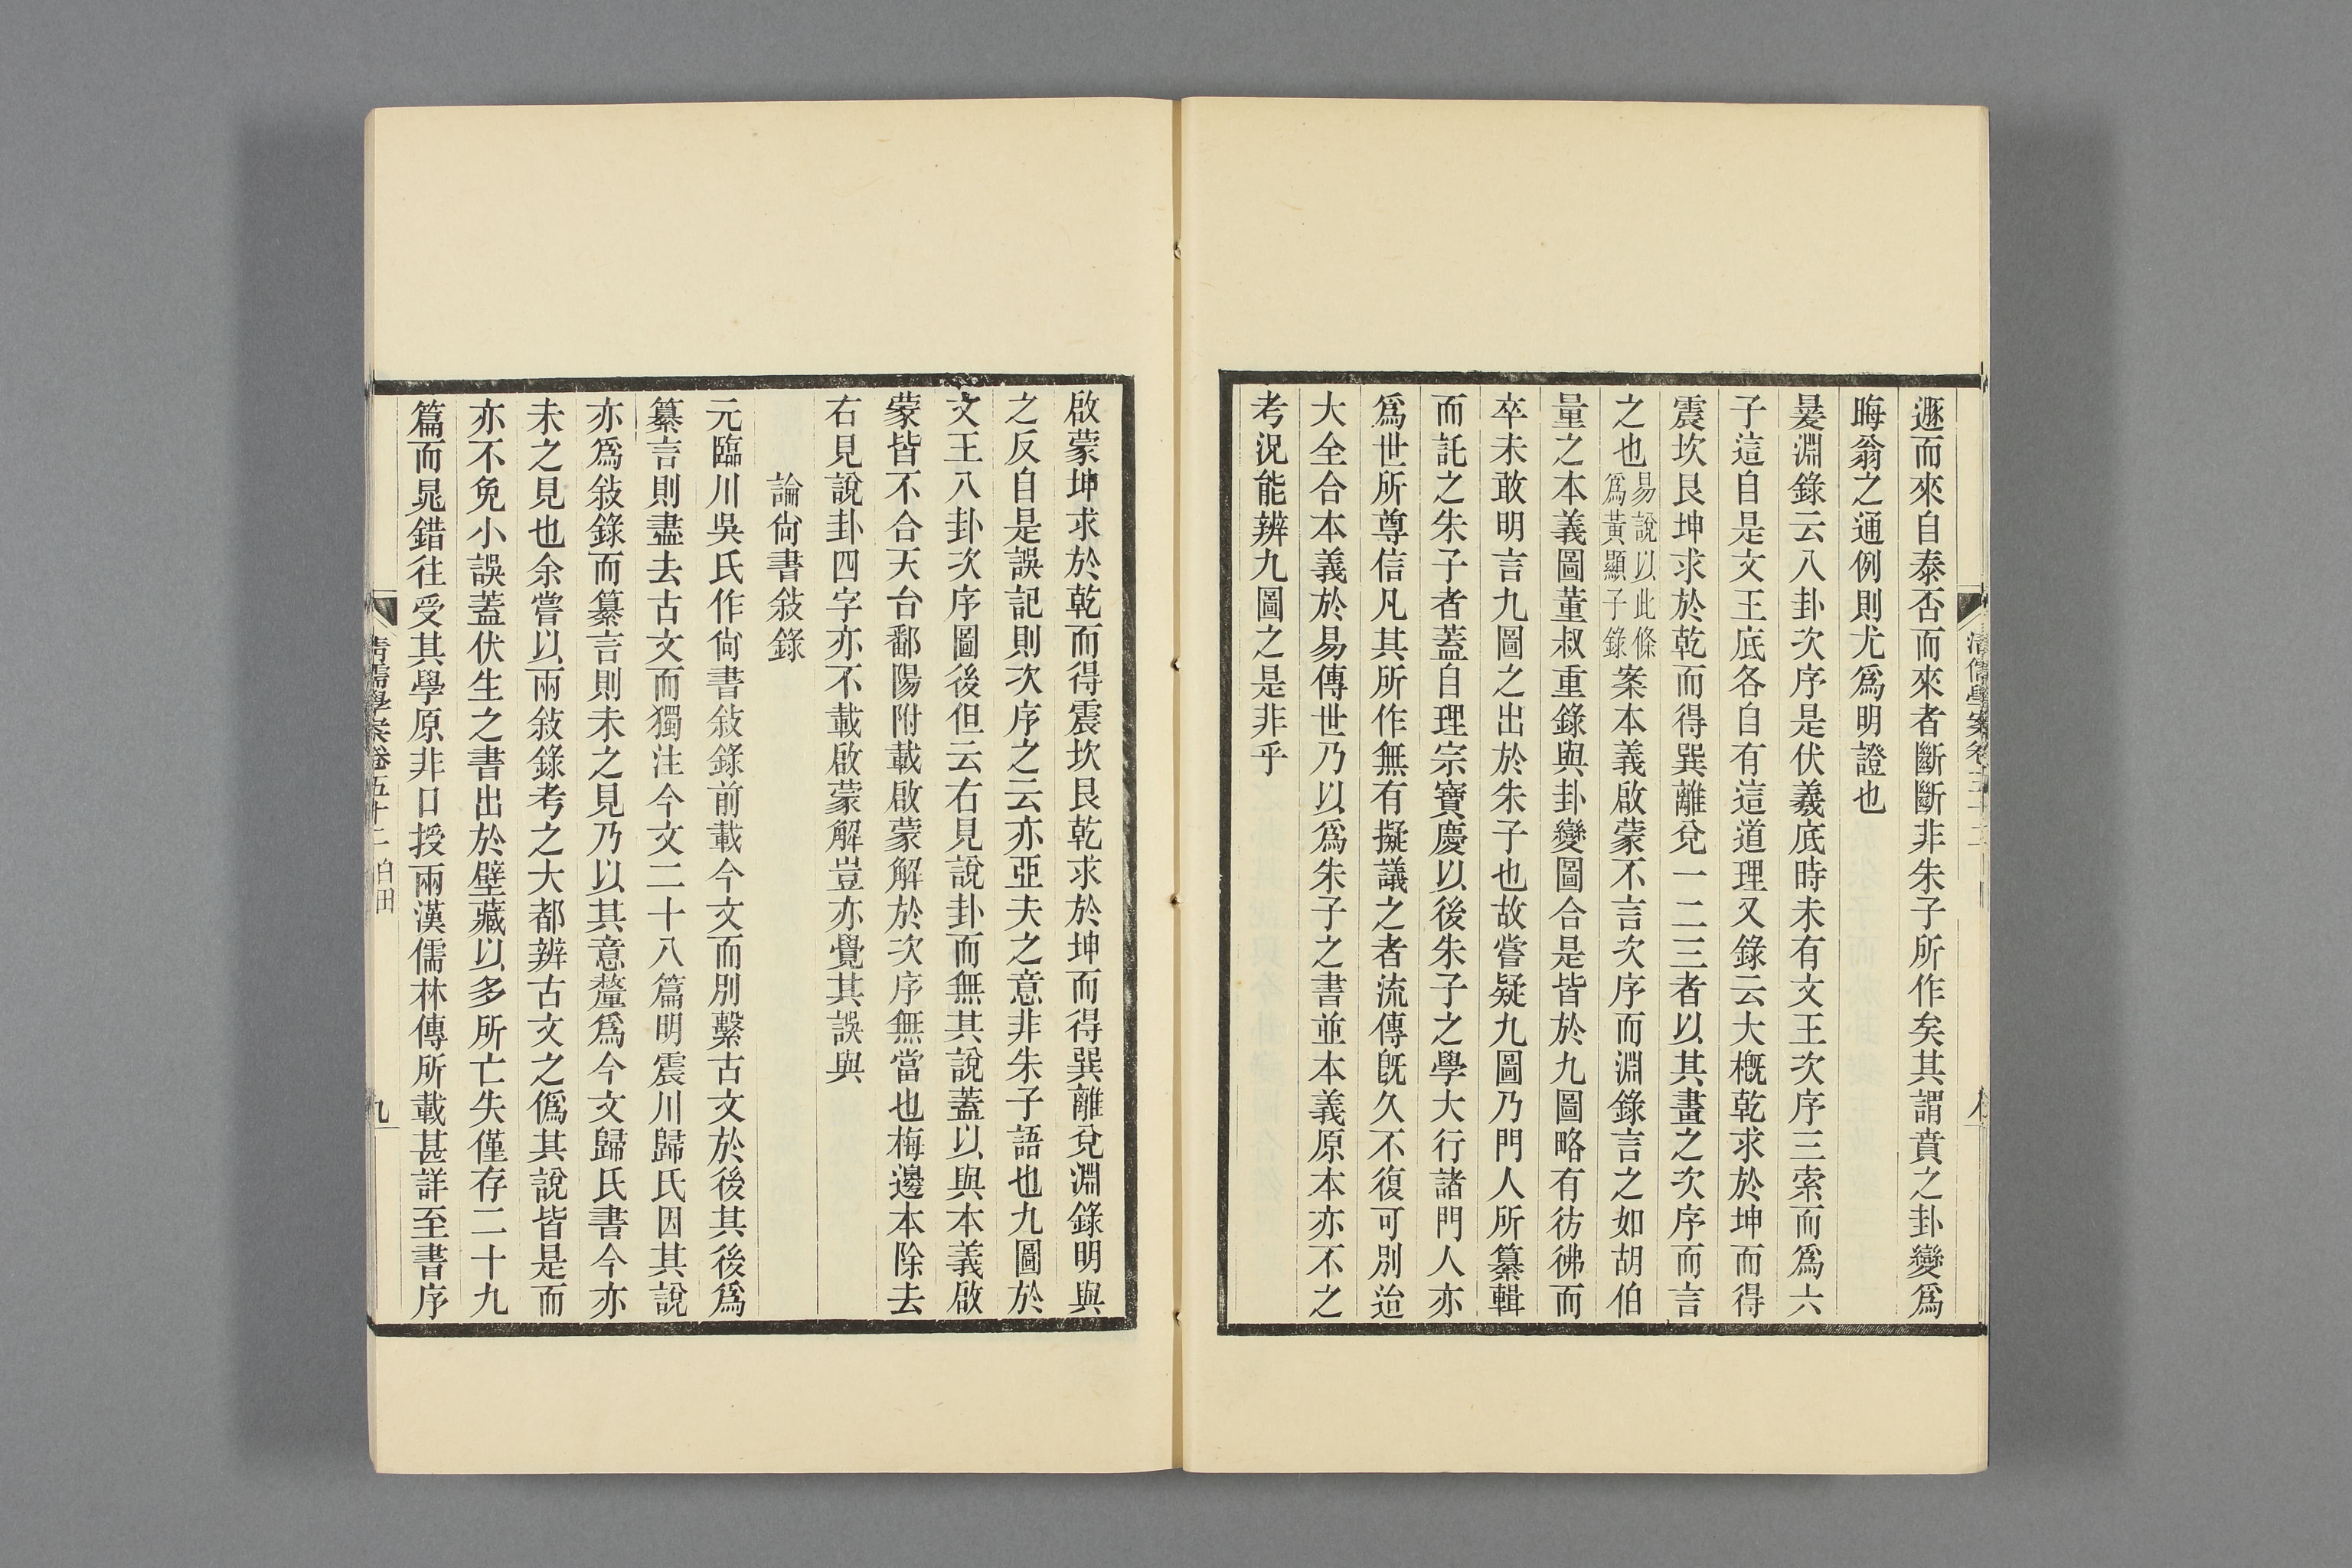 遯而來自泰否而來者斷斷非朱子所作矣其謂賁之卦變爲
晦翁之通例則尤爲明證也
㬊淵錄云八卦次序是伏羲底時未有文王次序三索而爲六
子這自是文王底各自有這道理又錄云大槪乾求於坤而得
震坎艮坤求於乾而得巽離兌一二三者以其畫之次序而言
之也易說以此條爲黃顯子錄案本義啟蒙不言次序而淵錄言之如胡伯
量之本義圖董叔重錄與卦變圖合是皆於九圖略有彷彿而
卒未敢明言九圖之出於朱子也故嘗疑九圖乃門人所纂輯
而託之朱子者蓋自理宗寶慶以後朱子之學大行諸門人亦
爲世所尊信凡其所作無有擬議之者流傳旣久不復可別迨
大全合本義於易傳世乃以爲朱子之書並本義原本亦不之
考況能辨九圖之是非乎
啟蒙坤求於乾而得震坎艮乾求於坤而得巽離兌淵錄明與
之反自是誤記則次序之云亦亞夫之意非朱子語也九圖於
文王八卦次序圖後但云右見說卦而無其說蓋以與本義啟
蒙皆不合天台鄱陽附載啟蒙解於次序無當也梅邊本除去
右見說卦四字亦不載啟蒙解豈亦覺其誤與
論尙書敍錄
元臨川吳氏作尙書敍錄前載今文而別繫古文於後其後爲
纂言則盡去古文而獨注今文二十八篇明震川歸氏因其說
亦爲敍錄而纂言則未之見乃以其意釐爲今文歸氏書今亦
未之見也余嘗以兩敍錄考之大都辨古文之僞其說皆是而
亦不免小誤蓋伏生之書出於壁藏以多所亡失僅存二十九
篇而晁錯往受其學原非口授兩漢儒林傳所載甚詳至書序
清儒學案卷五十二 白田
九